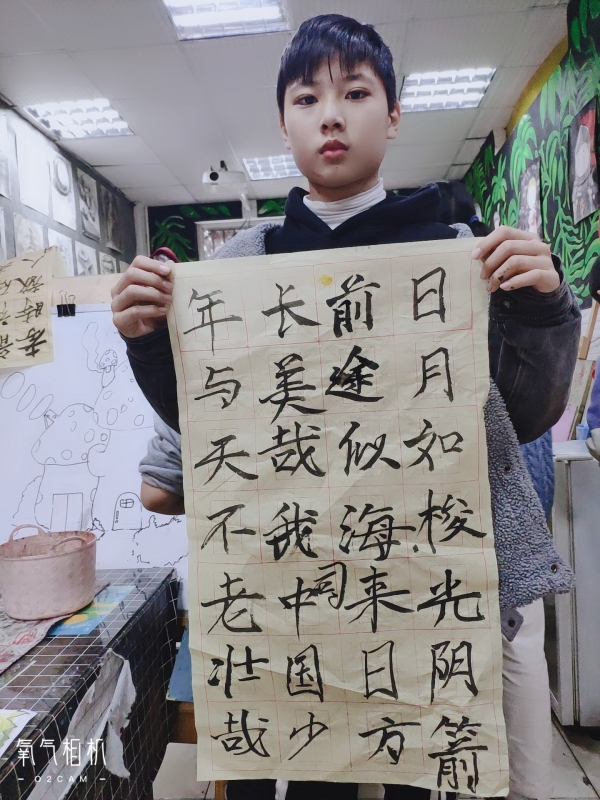 日月如梭光阴箭
前途似海来日方
长美哉我中国少
年与天不老壮哉
氧气相机
- O2CAM -